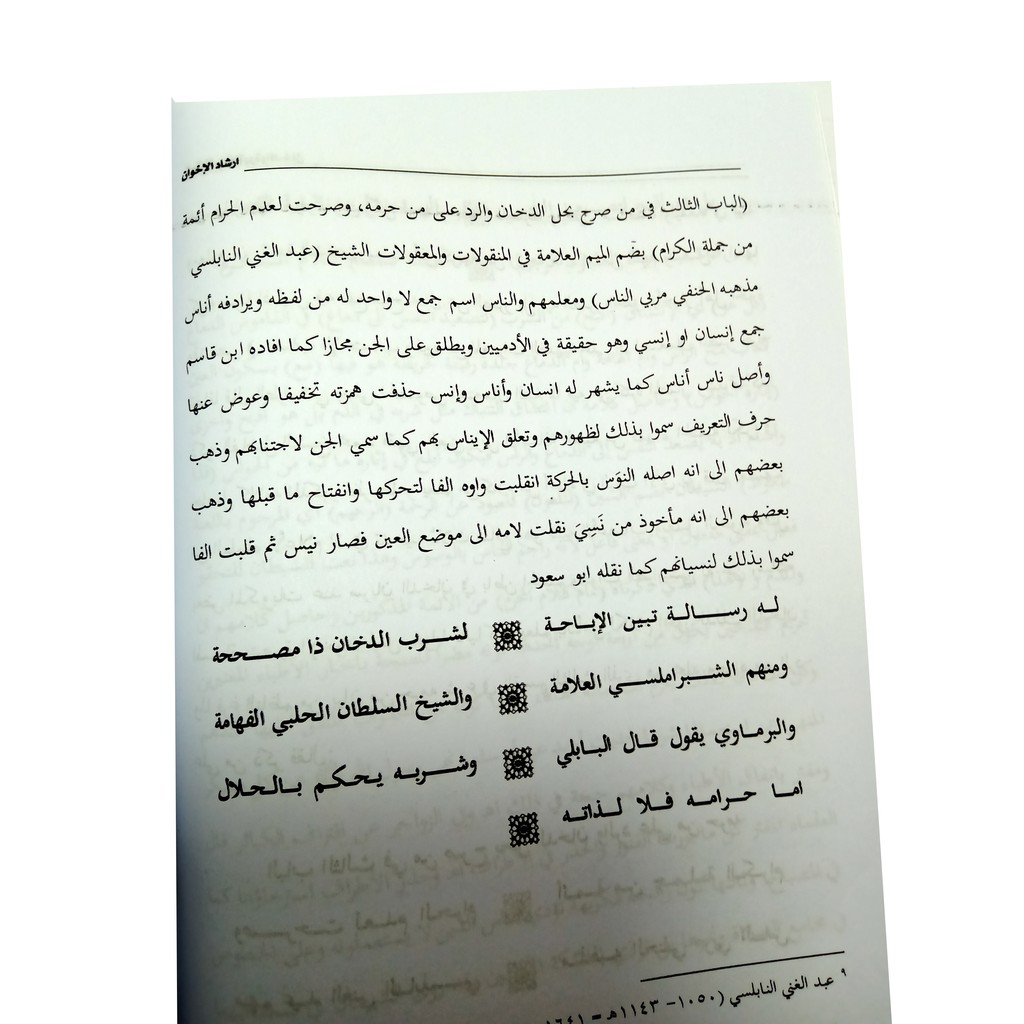 ارشاد الإخوان
(الباب الثالث في من صرح بحل الدخان والرد على من حرمه، وصرحت لعدم الحرام أئمة
من جملة الكرام) بضم الميم العلامة في المنقولات والمعقولات الشيخ (عبد الغني النابلسي
مذهبه الحنفي مربي الناس) ومعلمهم والناس اسم جمع لا واحد له من لفظه ويرادفه أناس
جمع إنسان او إنسي وهو حقيقة في الأدميين ويطلق على الجن مجازا كما افاده ابن قاسم
وأصل ناس أناس كما يشهر له انسان وأناس وإنس حذفت همزته تخفيفا وعوض عنها
حرف التعريف سموا بذلك لظهورهم وتعلق الإيناس بهم كما سمي الجن لاجتنابهم وذهب
بعضهم الى انه اصله النوَس بالحركة انقلبت واوه الفا لتحركها وانفتاح ما قبلها وذهب
بعضهم الى انه مأخوذ من نَسِيَ نقلت لامه الى موضع العين فصار نيس ثم قلبت الفا
سموا بذلك لنسيانهم كما نقله ابو سعود
له رسالة تبين الإباحة لشرب الدخان ذا مصححة
ومنهم الشبراملسي العلامة والشيخ السلطان الحلبي الفهامة
والبرماوي يقول قال البابلي وشربه يحكم بالحلال
اما حرامه فلا لذاته
٩ عبد الغني النابلسي (١٠٥٠- ١١٤٣هـ = ١٦٤١